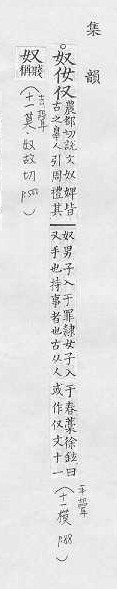 集韻
奴㚢仅
農都切說文奴婢皆
古之辠人引周禮其
奴男子入于罪隸女子入于舂藁徐鉉曰
又手也持事者也古从人或作仅文十一
(平聲
十一模 p.88)
奴
賤
稱
(去聲
十一莫 奴故切 p.500)